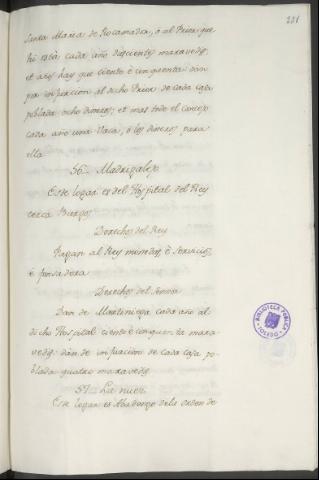 221
Santa Maria de Rocamador, ó al Prior que
hi está cada año doscientos maravedis;
et asy hay que ciento é cinquenta dan
por infurcion al dicho Prior de cada casa
poblada ocho dineros; et mas todo el concejo
cada año una Vaca, ó los dineros para
ella
56 Madrigalejo
Este logar es del Hospital del Rey
cerca Burgos
Derechos del Rey
Pagan al Rey monedas, é Servicios,
é fonsadera
Derechos del Sennor
Dan de Martiniega cada año al
dicho Hospital ciento é cinquenta mara
vedis: dan de infurcion de cada casa po
blada quatro maravedis
57 La nuez
Este logar es Abadengo de la orden de
BIBLIOTECA PUBLICA